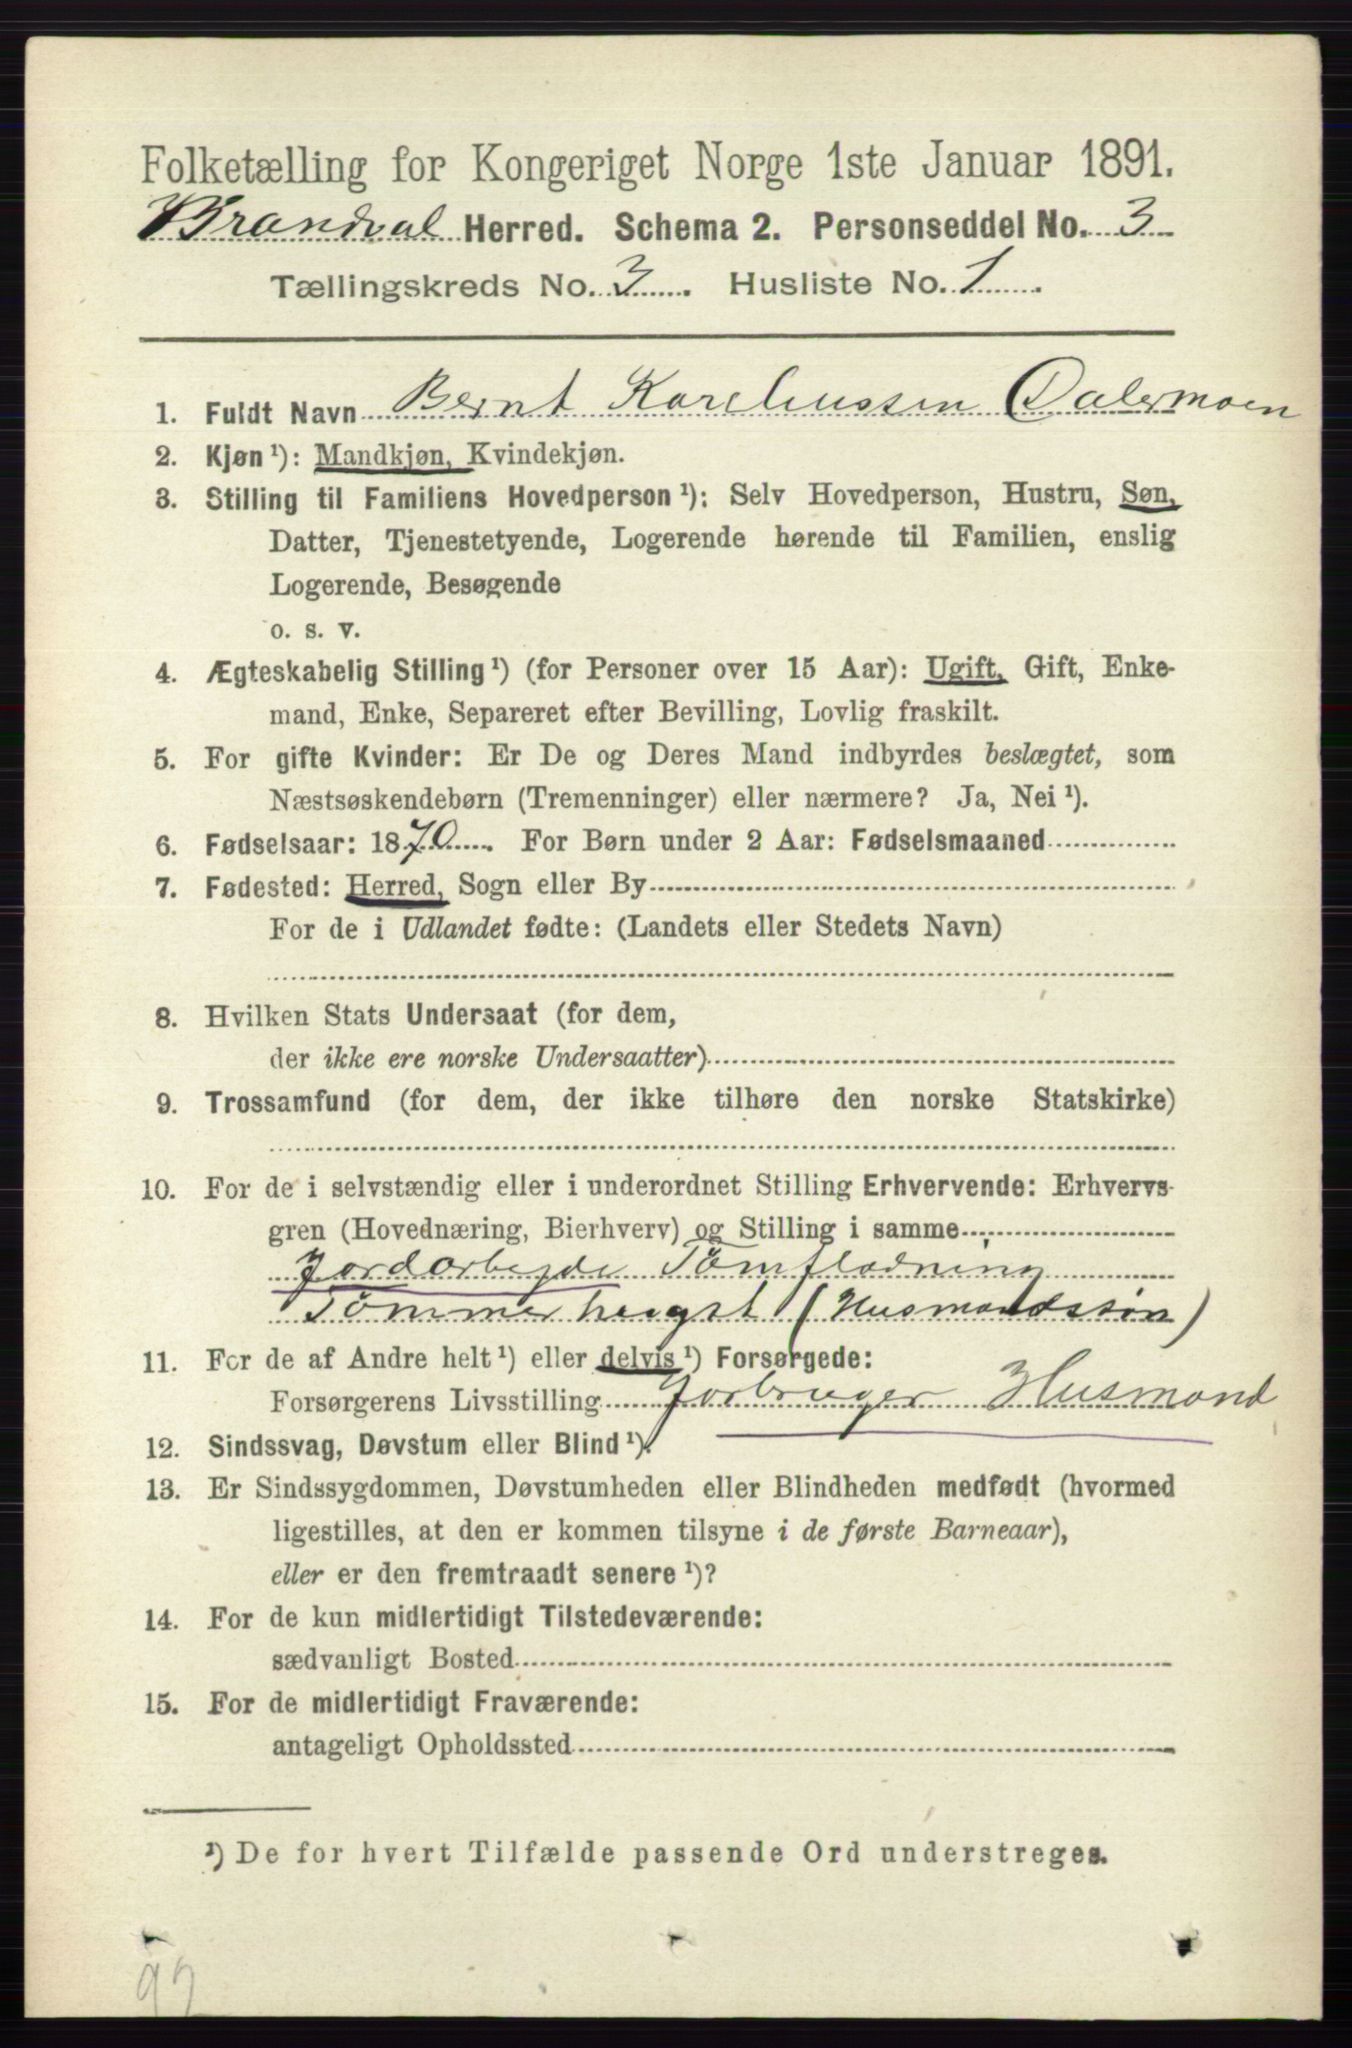 Folketælling for Kongeriget Norge 1ste Januar 1891.
Brandval Herred. Schema 2. Personseddel No. 3
Tællingskreds No. 3. Husliste No. 1.
1. Fuldt Navn Bernt Kareliussen Dalermoen
2. Kjøn¹): Mandkjøn, Kvindekjøn.
3. Stilling til Familiens Hovedperson¹): Selv Hovedperson, Hustru, Søn,
Datter, Tjenestetyende, Logerende hørende til Familien, enslig
Logerende, Besøgende
o. s. v.
4. Ægteskabelig Stilling¹) (for Personer over 15 Aar): Ugift, Gift, Enke-
mand, Enke, Separeret efter Bevilling, Lovlig fraskilt.
5. For gifte Kvinder: Er De og Deres Mand indbyrdes beslægtet, som
Næstsøskendebørn (Tremenninger) eller nærmere? Ja, Nei¹).
6. Fødselsaar: 1870. For Børn under 2 Aar: Fødselsmaaned
7. Fødested: Herred, Sogn eller By
For de i Udlandet fødte: (Landets eller Stedets Navn)
8. Hvilken Stats Undersaat (for dem,
der ikke ere norske Undersaatter)
9. Trossamfund (for dem, der ikke tilhøre den norske Statskirke)
10. For de i selvstændig eller i underordnet Stilling Erhvervende: Erhvervs-
gren (Hovednæring, Bierhverv) og Stilling i samme
Jordarbejde Tömflødning
Tømmerhugst (Husmandssøn)
11. For de af Andre helt¹) eller delvis¹) Forsørgede:
Forsørgerens Livsstilling Jorbruger Husmand
12. Sindssvag, Døvstum eller Blind¹).
13. Er Sindssygdommen, Døvstumheden eller Blindheden medfødt (hvormed
ligestilles, at den er kommen tilsyne i de første Barneaar),
eller er den fremtraadt senere¹)?
14. For de kun midlertidigt Tilstedeværende:
sædvanligt Bosted
15. For de midlertidigt Fraværende:
antageligt Opholdssted
¹) De for hvert Tilfælde passende Ord understreges.
92